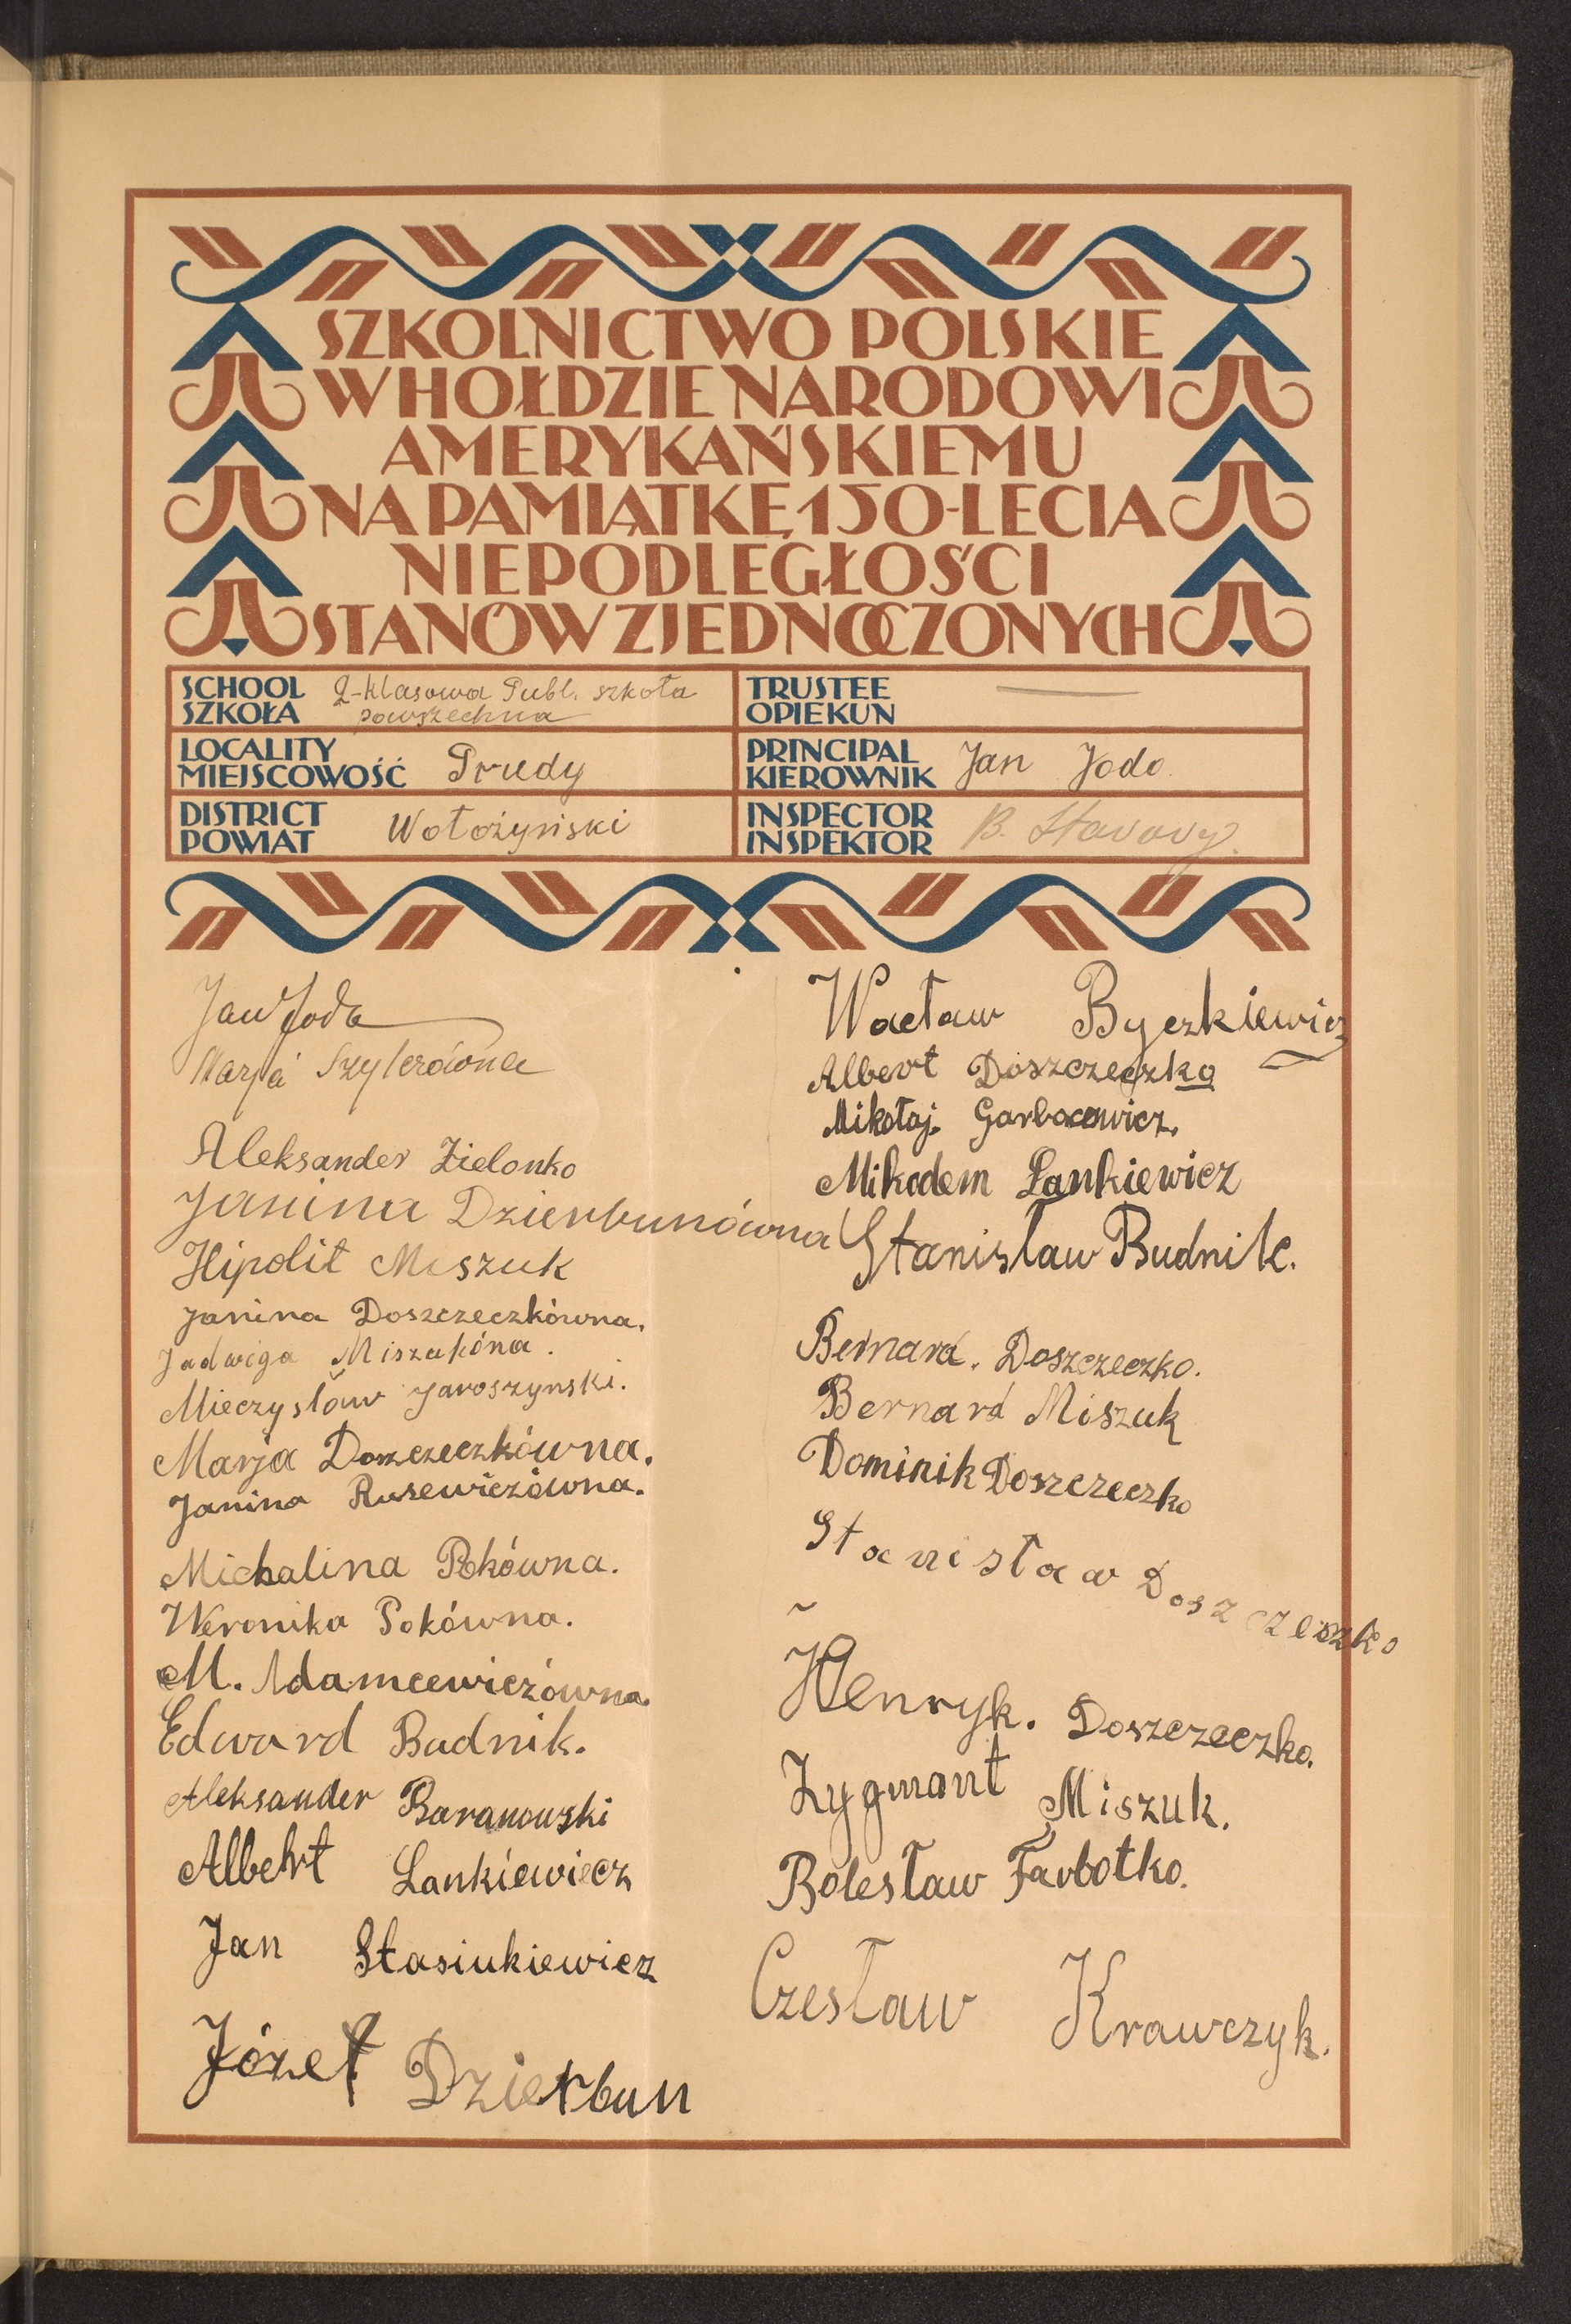 SZKOLNICTWO POLSKIE
W HOŁDZIE NARODOWI
AMERYKAŃSKIEMU
NA PAMIĄTKĘ 150-LECIA
NIEPODLEGŁOŚCI
STANÓW ZJEDNOCZONYCH
SCHOOL
SZKOŁA
2-klasowa Publ. szkoła
powszechna
TRUSTEE
OPIEKUN
LOCALITY
MIEJSCOWOŚĆ
Prudy
PRINCIPAL
KIEROWNIK
Jan Jodo
DISTRICT
POWIAT
Wołożyński
INSPECTOR
INSPEKTOR
B.
Jan Joda
Marja Szylerówna
Aleksander Zielonko
Janina Dzierbunówna
Hipolit Miszuk
Janina Doszczeczkówna.
Jadwiga Miszukóna.
Mieczysław Jaroszynski.
Marja Doszczeczkówna.
Janina Rusewiczówna.
Michalina Pokówna.
Weronika Pokówna.
M. Adamcewiczówna.
Edward Budnik.
Aleksander Baranowski
Albehrt Lankiewiecz
Jan Stasiukiewicz
Józef Dzierbun
Wacław Byczkiewicz
Albert Doszczeczko
Mikołaj. Garbacewicz.
Mikodem Lankiewicz
Stanisław Budnik.
Bernard. Doszczeczko.
Bernard Miszuk
Dominik Doszczeczko
Stanisław Doszczeszko
Henryk. Doszczeczko.
Zygmant Miszuk.
Bolesław Farbotko.
Czesław Krawczyk.